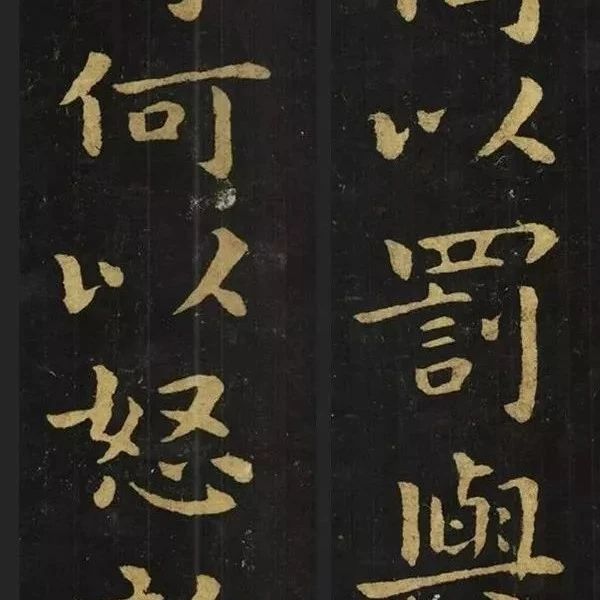 以罰與
何以怒